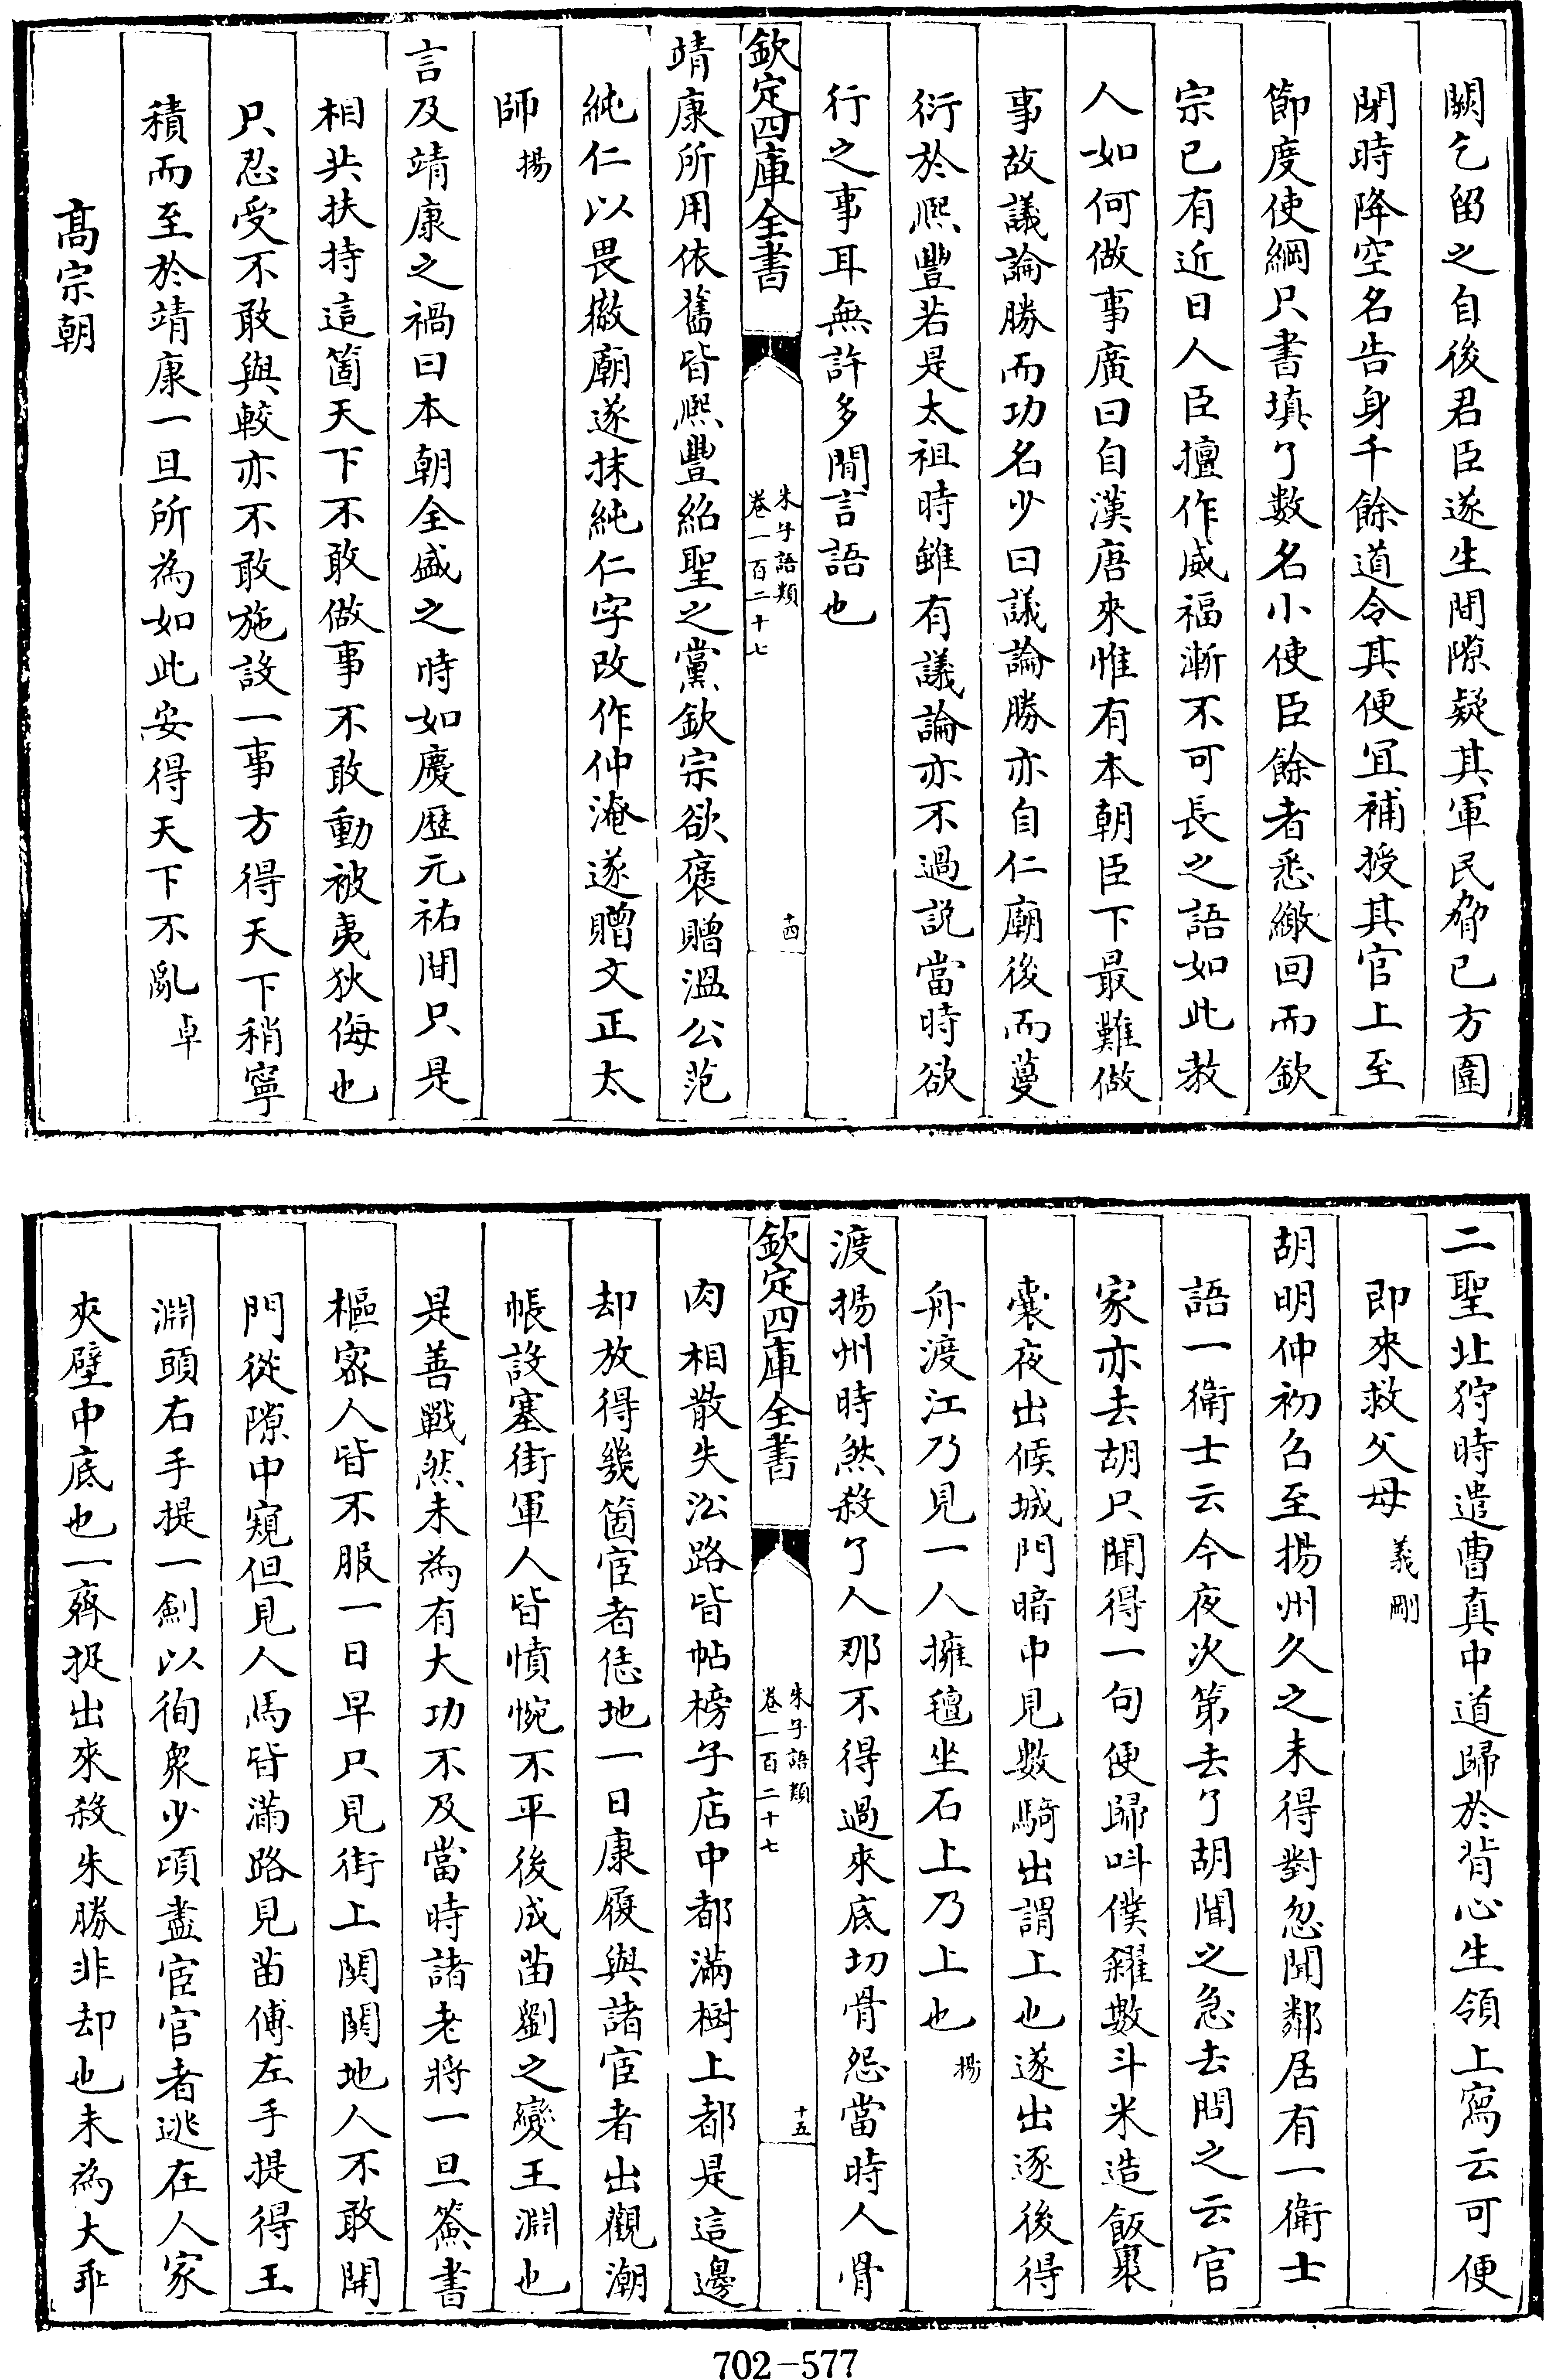 闕乞留之自後君臣遂生間隙疑其軍民脅已方圍
閉時降空名告身千餘道令其便冝補授其官上至
節度使綱只書填了數名小使臣餘者悉繳回而欽
宗已有近日人臣擅作威福漸不可長之語如此教
人如何做事廣曰自漢唐來惟有本朝臣下最難做
事故議論勝而功名少曰議論勝亦自仁廟後而蔓
衍於熈豐若是太祖時雖有議論亦不過説當時欲
行之事耳無許多閒言語也
欽定四庫全書
朱子語類
卷一百二十七
十四
靖康所用依舊皆熈豐紹聖之黨欽宗欲褒贈溫公范
純仁以畏徽廟遂抹純仁字改作仲淹遂贈文正太
師揚
言及靖康之禍曰本朝全盛之時如慶歴元祐間只是
相共扶持這箇天下不敢做事不敢動被夷狄侮也
只忍受不敢與較亦不敢施設一事方得天下稍寧
積而至於靖康一旦所為如此安得天下不亂卓
髙宗朝
二聖北狩時遣曹真中道歸於背心生領上寫云可便
即來救父母義剛
胡明仲初召至揚州久之未得對忽聞鄰居有一衛士
語一衛士云今夜次第去了胡聞之急去問之云官
家亦去胡只聞得一句便歸呌僕糴數斗米造飯裹
囊夜出候城門暗中見數騎出謂上也遂出逐後得
舟渡江乃見一人擁氊坐石上乃上也揚
渡揚州時煞殺了人那不得過來底切骨怨當時人骨
欽定四庫全書
朱子語類
卷一百二十七
十五
肉相散失㳂路皆帖榜子店中都滿樹上都是這邊
却放得幾箇宦者恁地一日康履與諸宦者出觀潮
帳設塞街軍人皆憤惋不平後成苗劉之變王淵也
是善戰然未為有大功不及當時諸老將一旦簽書
樞宻人皆不服一日早只見街上鬨鬨地人不敢開
門從隙中窺但見人馬皆滿路見苗傅左手提得王
淵頭右手提一劍以徇衆少頃盡宦官者逃在人家
夾壁中底也一齊捉出來殺朱勝非却也未為大乖
702-577